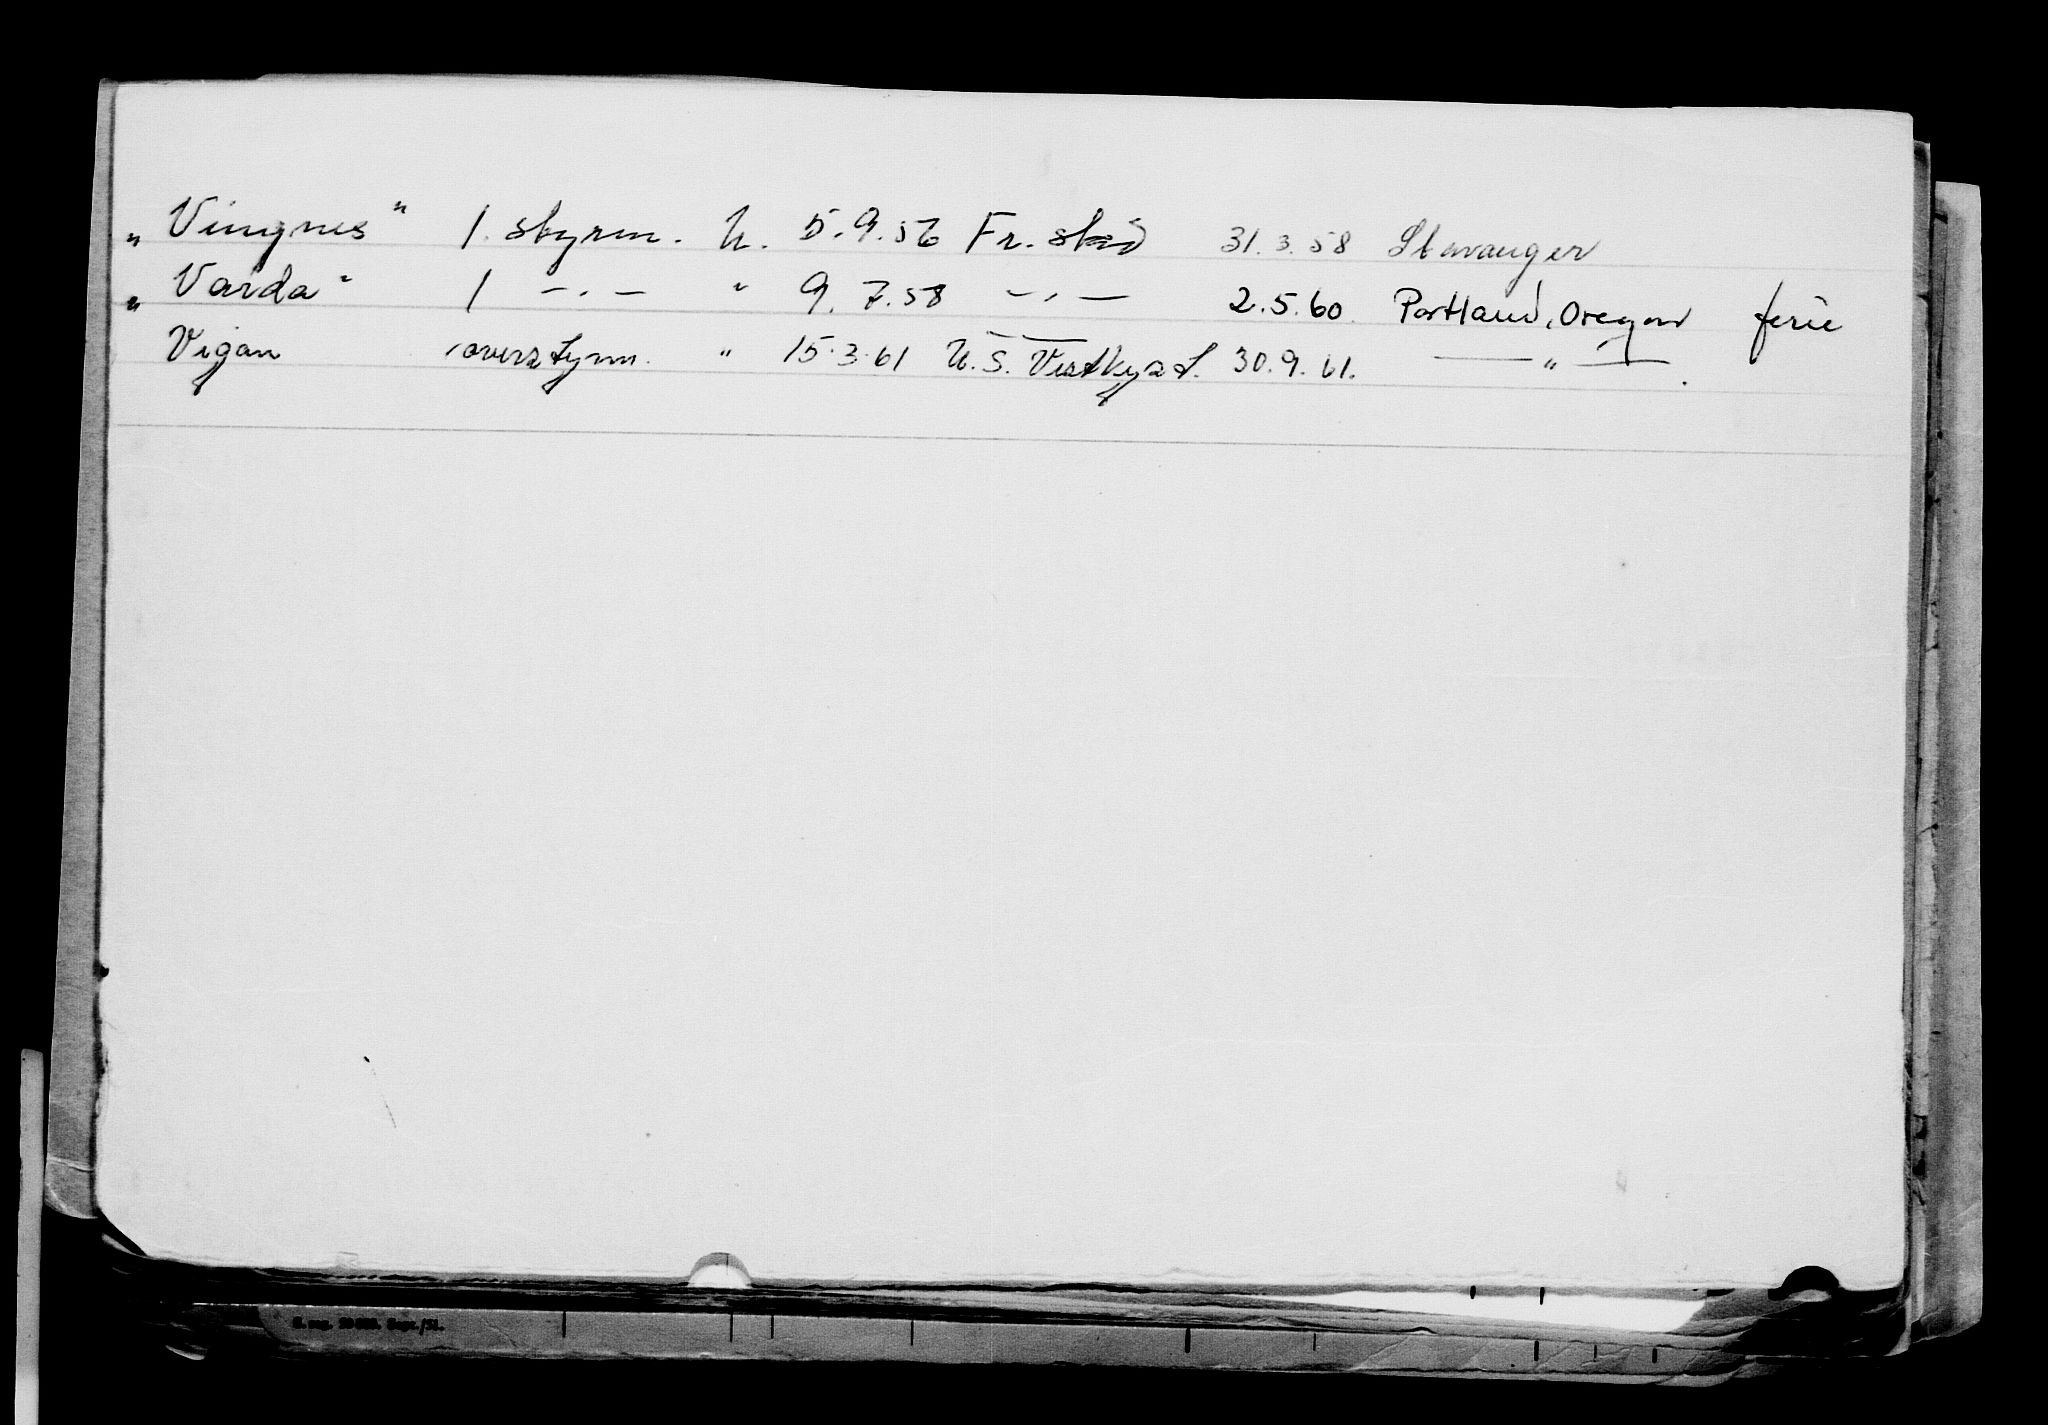 „Vingnes" 1. styrm. U. 5.9.56 Fr. sted 31.3.58 Stavanger
„Varda" 1 —"— " 9.7.58 —"— 2.5.60 Portland, Oregon ferie
Vigan overstyrm. " 15.3.61 U.S. Vestkyst. 30.9.61. —"—.